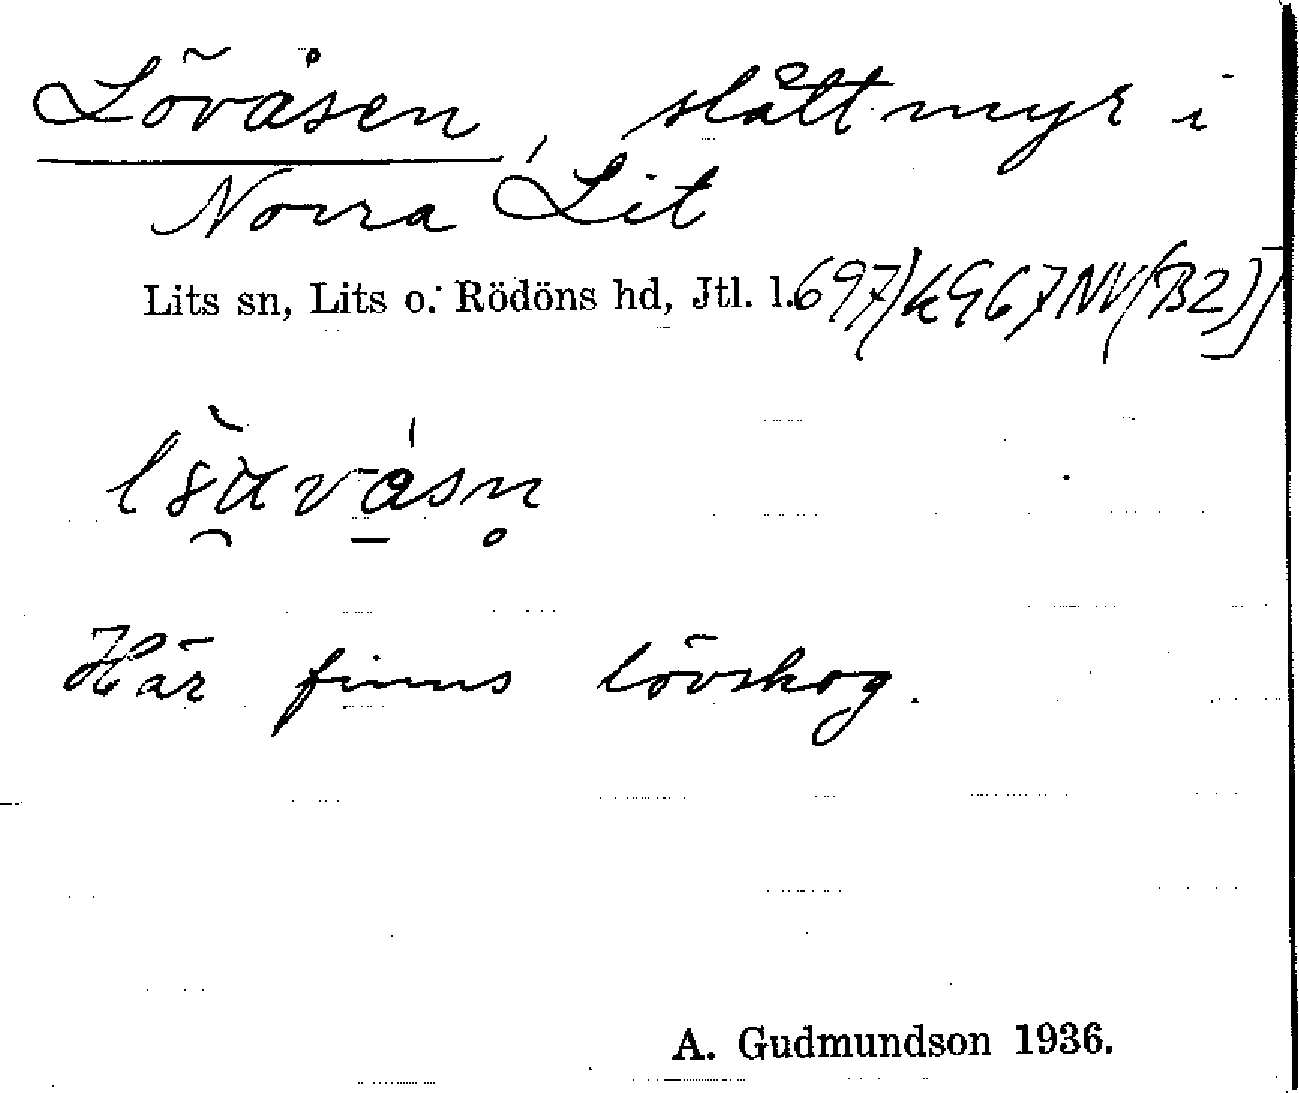 Lövåsen, slåttmyr i
Norra Lit
Lits sn, Lits o. Rödöns hd, Jtl. l.
Här finns lövskog.
A. Gudmundson 1936.